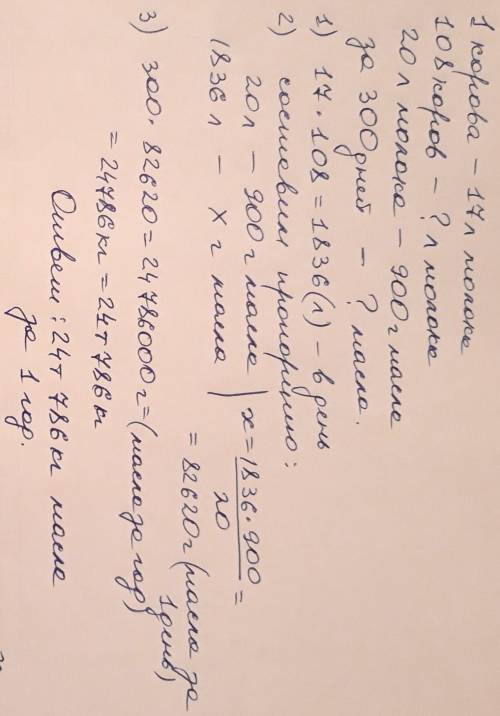 1 корова – 17 л молока
108 коров – ? л молока
20 л молока – 900 г масла
за 300 дней – ? масла.
1) 17 · 108 = 1836 (л) – в день
2) составим пропорцию:
20 л – 900 г масла | x = 1836 · 900 / 20 =
1836 л – x г масла = 82620 г (масла за 1 день)
3) 300 · 82620 = 24786000 г = (масла за год)
= 24786 кг = 24 т 786 кг
Ответ: 24 т 786 кг масла
за 1 год.